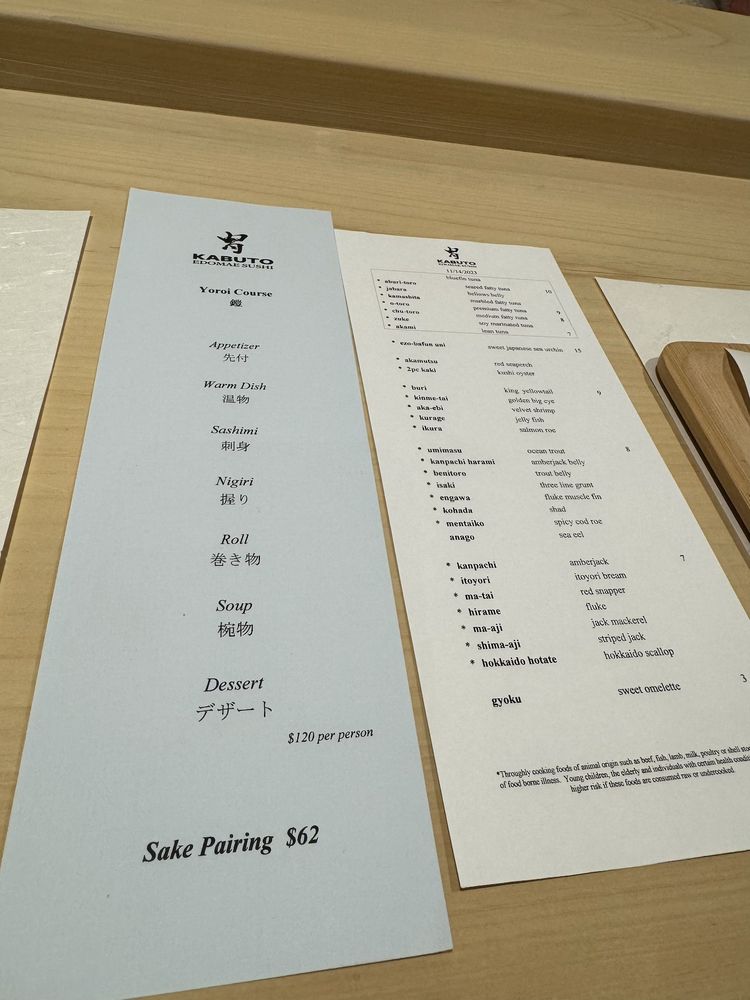 KABUTO
EDOMAE SUSHI
Yoroi Course
鎧
Appetizer
先付
Warm Dish
温物
Sashimi
刺身
Nigiri
握り
Roll
巻き物
Soup
椀物
Dessert
デザート
$120 per person
Sake Pairing $62
KABUTO
EDOMAE SUSHI
11/14/2023
bluefin tuna
* aburi-toro seared fatty tuna 10
* jabara bellows belly
* kamashita marbled fatty tuna
* o-toro premium fatty tuna 9
* chu-toro medium fatty tuna 8
* zuke soy marinated tuna
* akami lean tuna 7
* ezo-bafun uni sweet japanese sea urchin 15
* akamutsu red seaperch
* 2pc kaki kushi oyster
* buri king yellowtail 9
* kinme-tai golden big eye
* aka-ebi velvet shrimp
* kurage jelly fish
* ikura salmon roe
* umimasu ocean trout 8
* kanpachi harami amberjack belly
* benitoro trout belly
* isaki three line grunt
* engawa fluke muscle fin
* kohada shad
* mentaiko spicy cod roe
anago sea eel
* kanpachi amberjack 7
* itoyori itoyori bream
* ma-tai red snapper
* hirame fluke
* ma-aji jack mackerel
* shima-aji striped jack
* hokkaido hotate hokkaido scallop
gyoku sweet omelette 3
*Throughly cooking foods of animal origin such as beef, fish, lamb, milk, poultry or shell
of food borne illness. Young children, the elderly and individuals with certain health
higher risk if these foods are consumed raw or undercooked